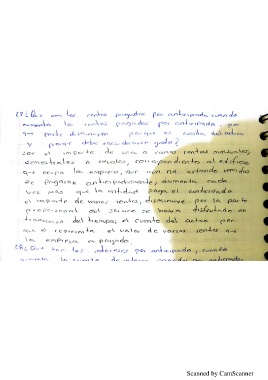 27 ¿Que son las rentas pagadas por anticipado, cuando
aumenta la rentas pagadas por anticipado, por
que parte disminuyen porque es cuenta del activo
y porque debe considerarse gasto?
Son el importe de una o varias rentas mensuales,
semestrales o anuales, correspondiente al edificio
que ocupa la empresa, que aun no estando vencidas
se pagaron anticipadamente, aumenta cada
vez mas que la entidad paga el anticipado
el importe de varias rentas, disminuye por la parte
proporcional del servicio se haya disfrutado en
transcurso del tiempo, es cuenta del activo por
que el representa el valor de varias rentas que
la empresa a pagado.
28 ¿Que son los intereses por anticipado, cuando
aumenta la cuenta de
Scanned by CamScanner